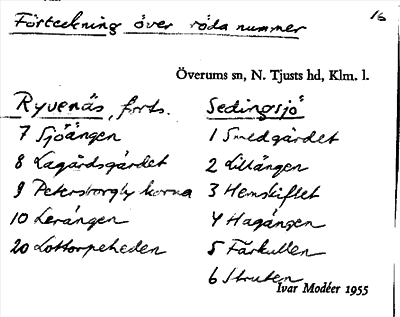 Förteckning över röda nummer
16
Överums sn, N. Tjusts hd, Klm. l.
Ryvenäs, forts.
7 Sjöängen
8 Lagårdsgärdet
9 Petersborg
10 Lerängen
20 Lottorpeheden
Sedingsjö
1 Smedgärdet
2 Lillängen
3 Hemskiftet
4 Hagängen
5 Fårkullen
6 Struten
Ivar Modéer 1955